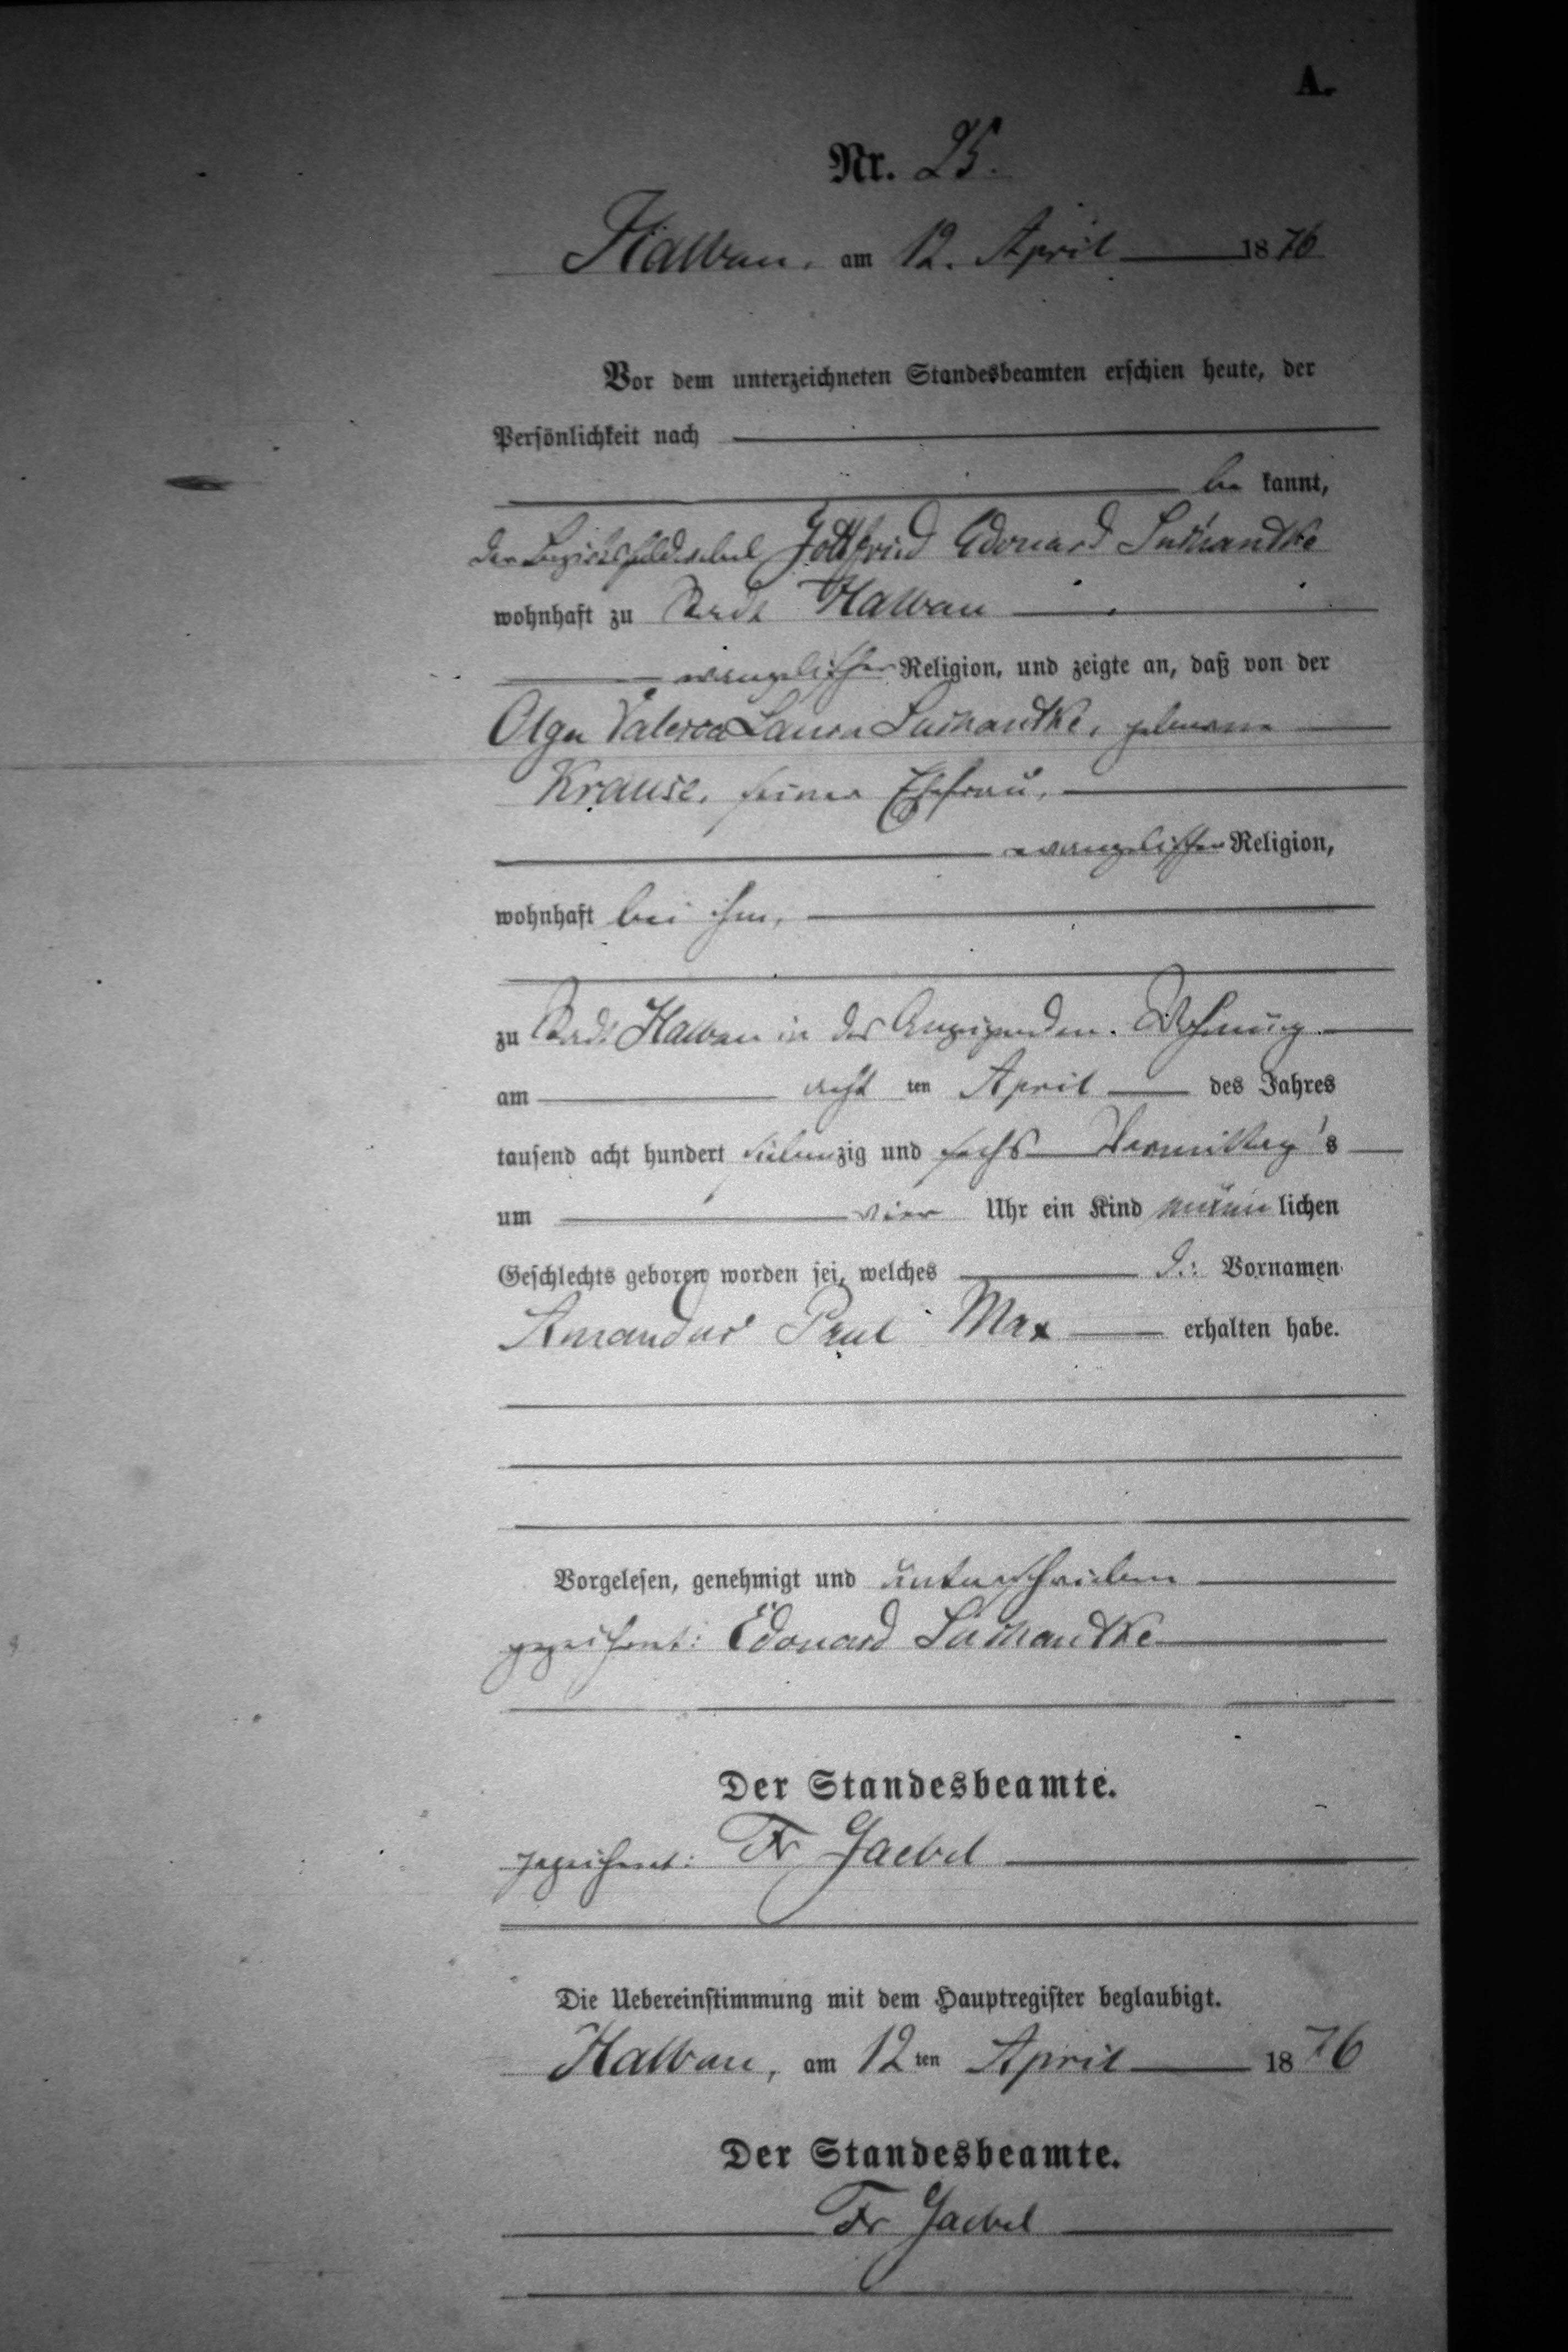 A.
Nr. 25.
Halbau, am 12. April 1876
Vor dem unterzeichneten Standesbeamten erschien heute, der
Persönlichkeit nach
be kannt,
der Bezirksfeldwebel Gottfried Edouard Suchantke
wohnhaft zu Stadt Halbau
evangelischer Religion, und zeigte an, daß von der
Olga Valesca Laura Suchantke, geborene
Krause, seiner Ehefrau,
evangelischer Religion,
wohnhaft bei ihm,
zu Stadt Halbau in des Anzeigenden Wohnung
am acht ten April des Jahres
tausend acht hundert siebenzig und sechs Vormittag's
um vier Uhr ein Kind männ lichen
Geschlechts geboren worden sei, welches Vornamen
Amandus Paul Max erhalten habe.
Vorgelesen, genehmigt und unterschrieben
gezeichnet: Edouard Suchantke
Der Standesbeamte.
gezeichnet: Fr Gaebel
Die Uebereinstimmung mit dem Hauptregister beglaubigt.
Halbau, am 12 ten April 1876
Der Standesbeamte.
Fr Gaebel